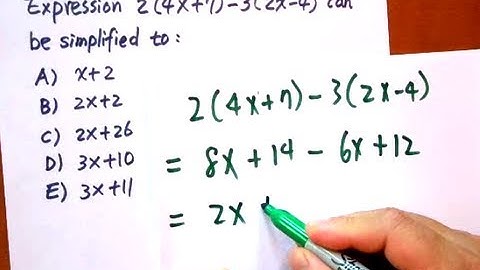 Expression 2(4x+7)-3(2x-4) can
be simplified to:
A) x+2
B) 2x+2
C) 2x+26
D) 3x+10
E) 3x+11
2(4x+7)-3(2x-4)
= 8x+14-6x+12
= 2x